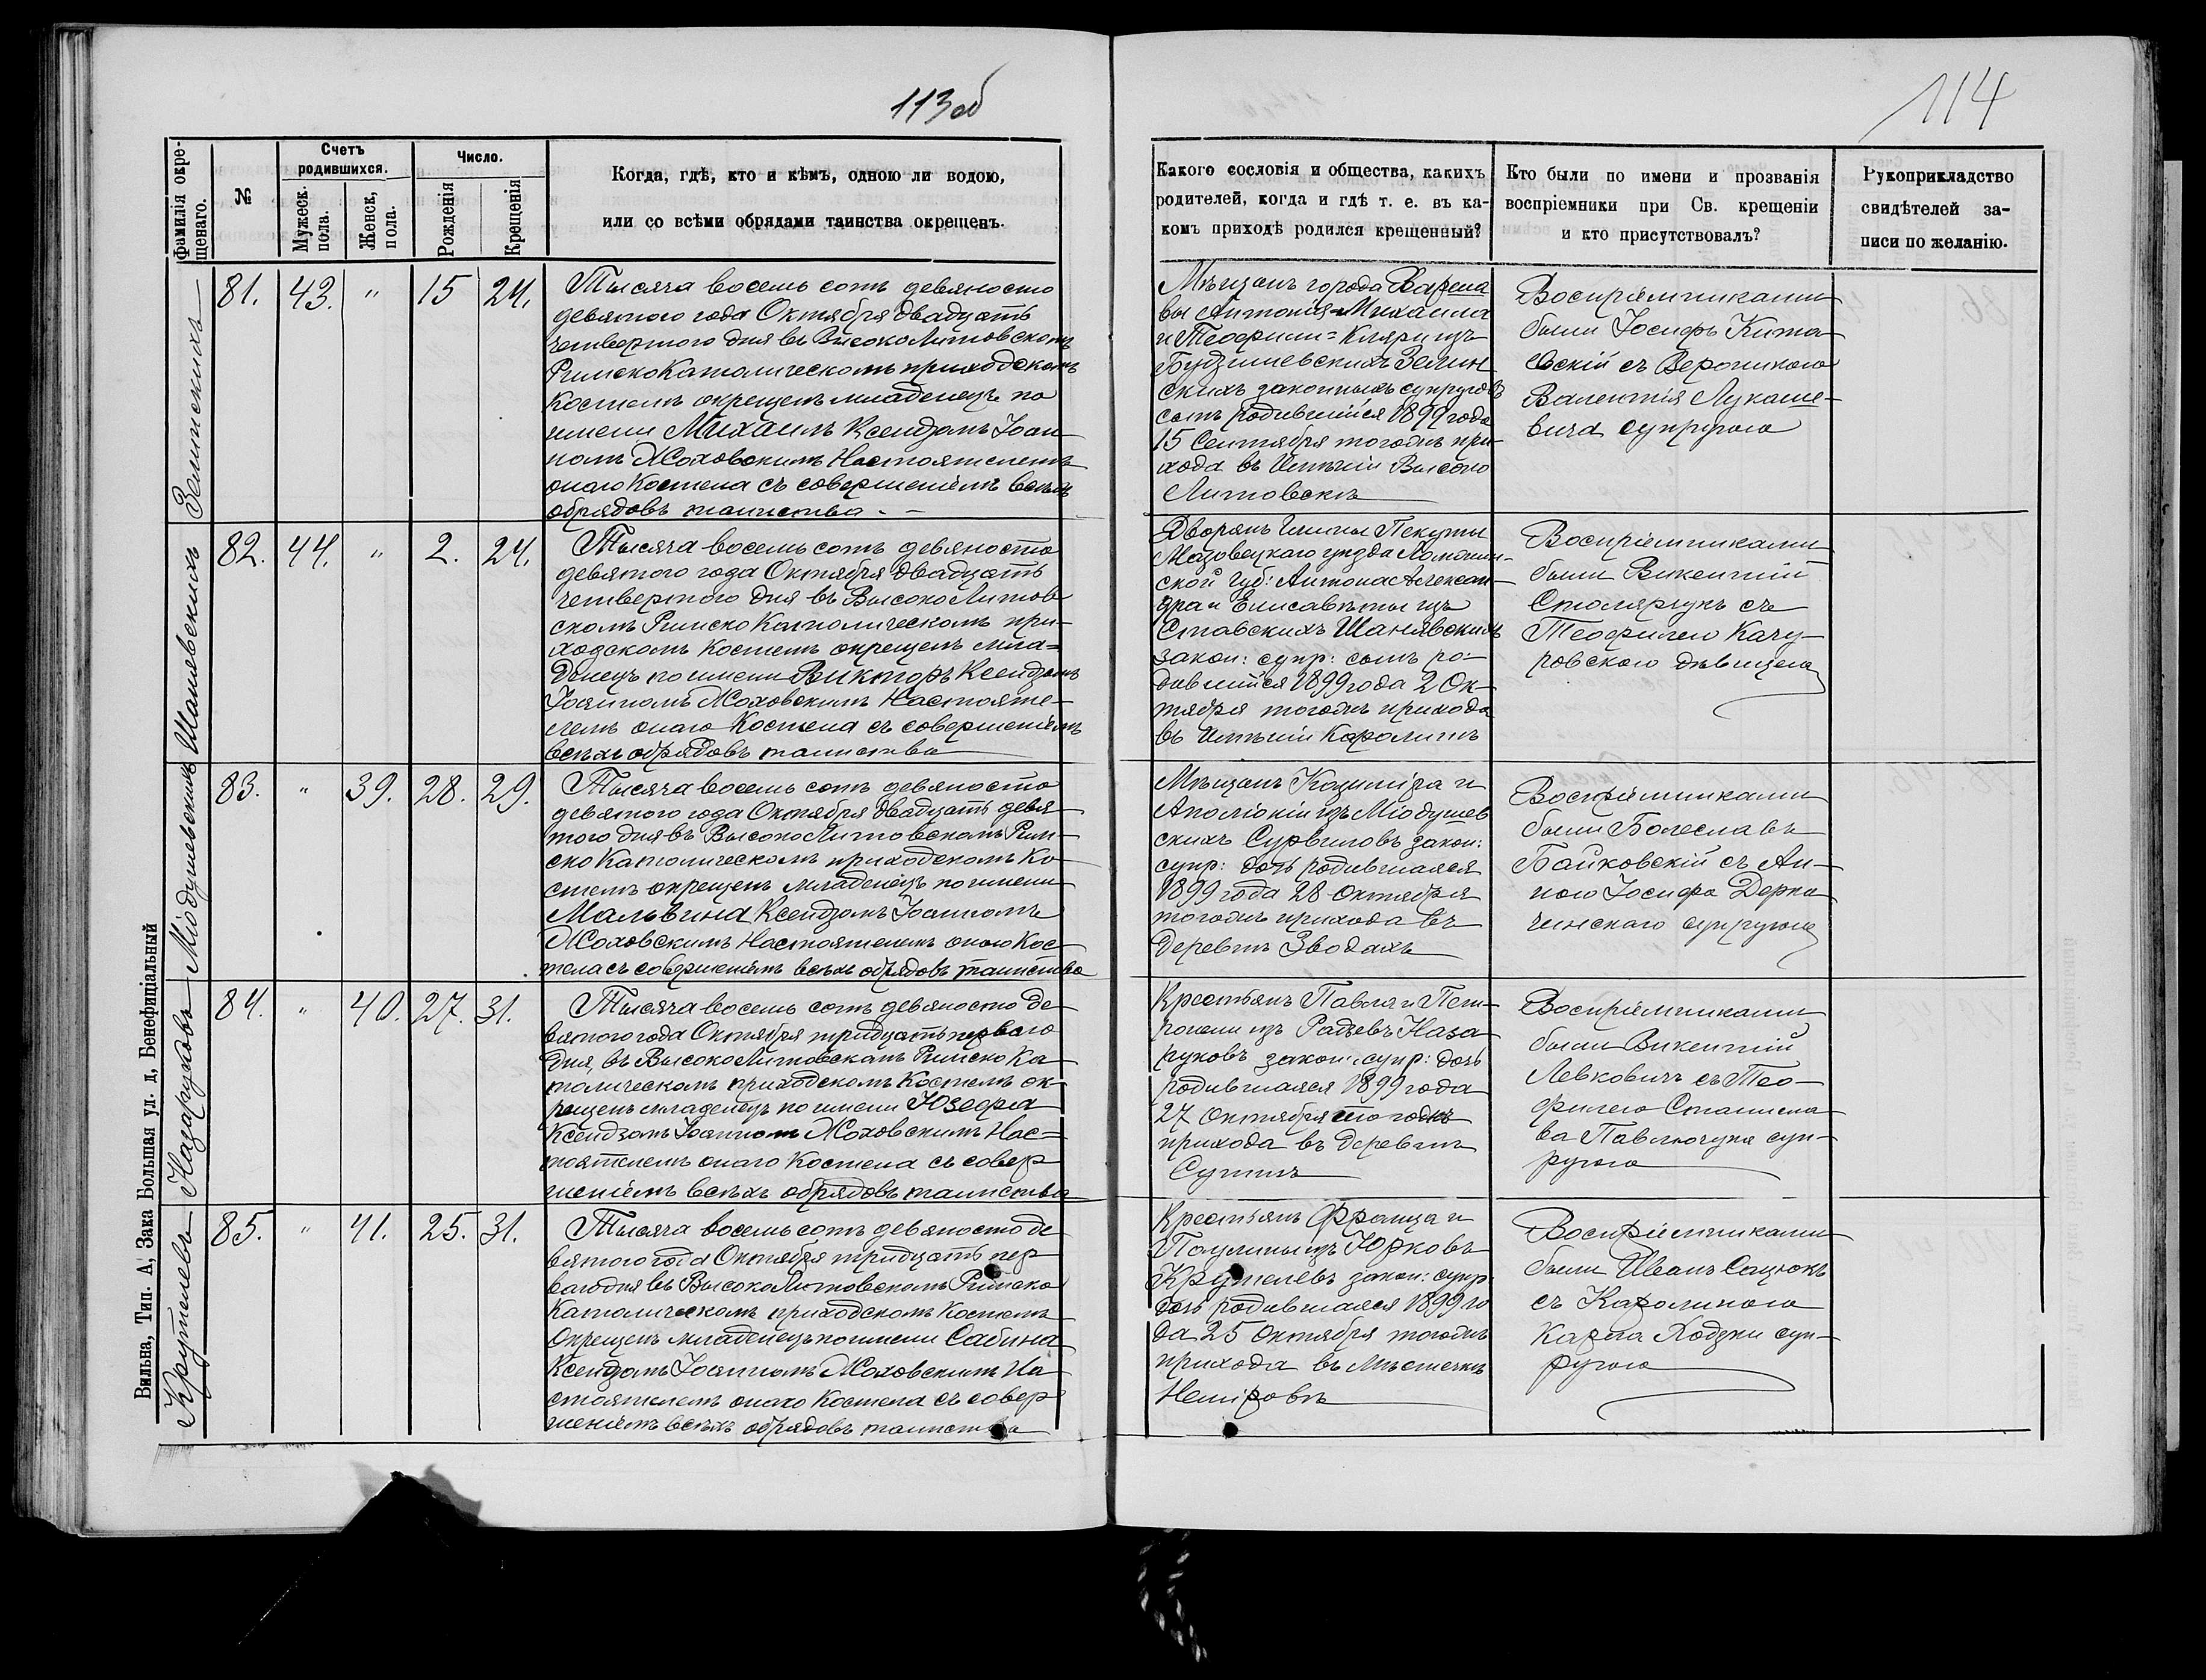 113об
114
Фамилія окре-
щенаго.
№
Счетъ
родившихся.
Мужеск.
пола.
Женск,
пола.
Число.
Рожденія
Крещенія
Когда, гдѣ, кто и кѣмъ, одною ли водою,
или со всѣми обрядами таинства окрещенъ.
Какого сословія и общества, какихъ
родителей, когда и гдѣ т. е. въ ка-
комъ приходѣ родился крещенный?
Кто были по имени и прозванія
воспріемники при Св. крещеніи
и кто присутствовалъ?
Рукоприкладство
свидѣтелей за-
писи по желанію.
81. 43. " 15 24.
Тысяча восемь сотъ девяносто
девятого года Октября двадцать
четвертого дня въ ВысокоЛитовскомъ
РимскоКатолическомъ приходскомъ
Костелѣ окрещенъ младенецъ по
имени Михаилъ Ксендзомъ Іоан
номъ Жоховскимъ Настоятелемъ
онаго Костела съ совершеніемъ всѣхъ
обрядовъ таинства. —
Мѣщанъ города Варша
вы Антонія-Михаила
и Теофили=Кляри изъ
скихъ законныхъ супруговъ
сынъ родившійся 1899 года
15 Сентября тогожъ при-
хода въ Имѣніи Высоко
Литовскъ
Воспріемниками
были Іосифъ Кита
евскій съ Вероникою
Валентія Лукаше-
вича супругою
Шанявскихъ
82. 44. " 2. 24.
Тысяча восемь сотъ девяносто
девятого года Октября двадцать
четвертого дня въ Высоко Литов
скомъ Римско Католическомъ при-
ходскомъ Костелѣ окрещенъ мла=
денецъ по имени Викторъ Ксендзомъ
Іоанномъ Жоховскимъ Настояте-
лемъ онаго Костела съ совершеніемъ
всѣхъ обрядовъ таинства
Дворянъ Гмины Пекуты
Мазовецкаго уѣзда Ломжин-
ской Губ: Антона Алексан-
дра и Елисаветы изъ
Ставскихъ Шанявскихъ
закон: супр: сынъ ро-
дившійся 1899 года 2 Ок-
тября тогожъ прихода
въ Имѣніи Каролинъ
Воспріемниками
были Викентій
Столярчукъ съ
Теофилею Качу-
ровскою дѣвицею
Міодушевскихъ
83. " 39. 28. 29.
Тысяча восемь сотъ девяносто
девятого года Октября двадцать девя
того дня въ Высоко Литовскомъ Рим-
ско Католическомъ приходскомъ Ко-
стелѣ окрещенъ младенецъ по имени
Мальвина Ксендзомъ Іоанномъ
Жоховскимъ Настоятелемъ онаго Кос
тела съ совершеніемъ всѣхъ обрядовъ таинства
Мѣщанъ Казиміра и
Аполіоніи изъ Міодушев
скихъ Сурвиловъ закон:
супр: дочь родившаяся
1899 года 28 Октября
тогожъ прихода въ
Деревнѣ Зводахъ
Воспріемниками
были Болеславъ
Байковскій съ Ан-
ною Іосифа Дерка
чинскаго супругою
Назаруковъ
84. " 40. 27. 31.
Тысяча восемь сотъ девяносто де-
вятого года Октября тридцать первого
дня, въ Высоко Литовскомъ Римско Ка
толическомъ приходскомъ Костелѣ ок-
рещенъ младенецъ по имени Юзефа
Ксендзомъ Іоанномъ Жоховскимъ Нас=
тоятелемъ онаго Костела съ совер
шеніемъ всѣхъ обрядовъ таинства
Крестьянъ Павла и Пет-
ронели изъ Радзевъ Наза
руковъ закон: супр: дочь
родившаяся 1899 года
27 Октября тогожъ
прихода въ деревнѣ
Воспріемниками
были Викентій
Левковичъ съ Тео-
филею Станисла
ва Павлючука суп-
ругою
Крутелевъ
85. " 41. 25. 31.
Тысяча восемь сотъ девяносто де
вятого года Октября тридцать пер
ваго дня въ Высоко Литовскомъ Римско
Католическомъ приходскомъ Костелѣ
Окрещенъ младенецъ по имени Сабина
Ксендзомъ Іоанномъ Жоховскимъ На
стоятелемъ онаго Костела съ совер
шеніемъ всѣхъ обрядовъ таинства
Крестьянъ Франца и
Паулины изъ Юрковъ
Крутелевъ закон: супр
дочь родившаяся 1899 го
да 25 Октября тогожъ
прихода въ Мѣстечкѣ
Немировѣ
Воспріемниками
были Иванъ Сацюкъ
съ Каролиною
Карпа Ходзки суп-
ругою
Вильна, Тип. А, Зака Большая ул. д, Бенефиціальный